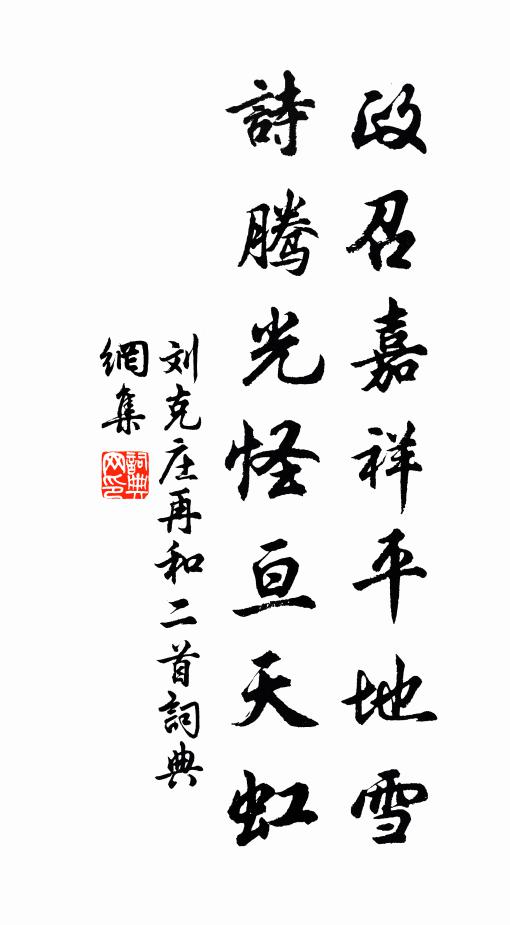 政召嘉祥平地雪
詩腾光怪亘天虹
刘克庄再和二首詞典
網集
詞典网印